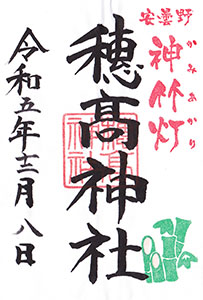 安曇野
神竹灯
かみあかり
穂髙神社
穂高神社
令和五年十二月八日